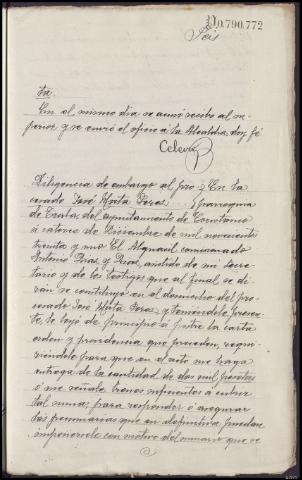 D0.790.772
Seis
ta.
En el mismo dia se acusó recibo al su-
perior y se envió el oficio á la Alcaldia, doy fé
Diligencia de embargo al pro-} En la
cesado José Mata Perez } parroquia
de Trabas del ayuntamiento de
á catorce de Diciembre de mil novecientos
treinta y uno El Alguacil comisionado
Antonio Dias y Dias, asistido de mi secre-
tario y de los testigos que al final se di-
rán se constituyó en el domicilio del pro-
cesado José Mata Perez y teniendole presen-
te, le leyó de principio á fin la carta
orden y providencia que preceden, requi-
riéndole para que en el acto me haga
entrega de la cantidad de dos mil pesetas
ó me señale bienes suficientes á cubrir
tal suma, para responder ó asegurar
las pecuniarias que en definitiva puedan
imponersele con motivo del sumario que se